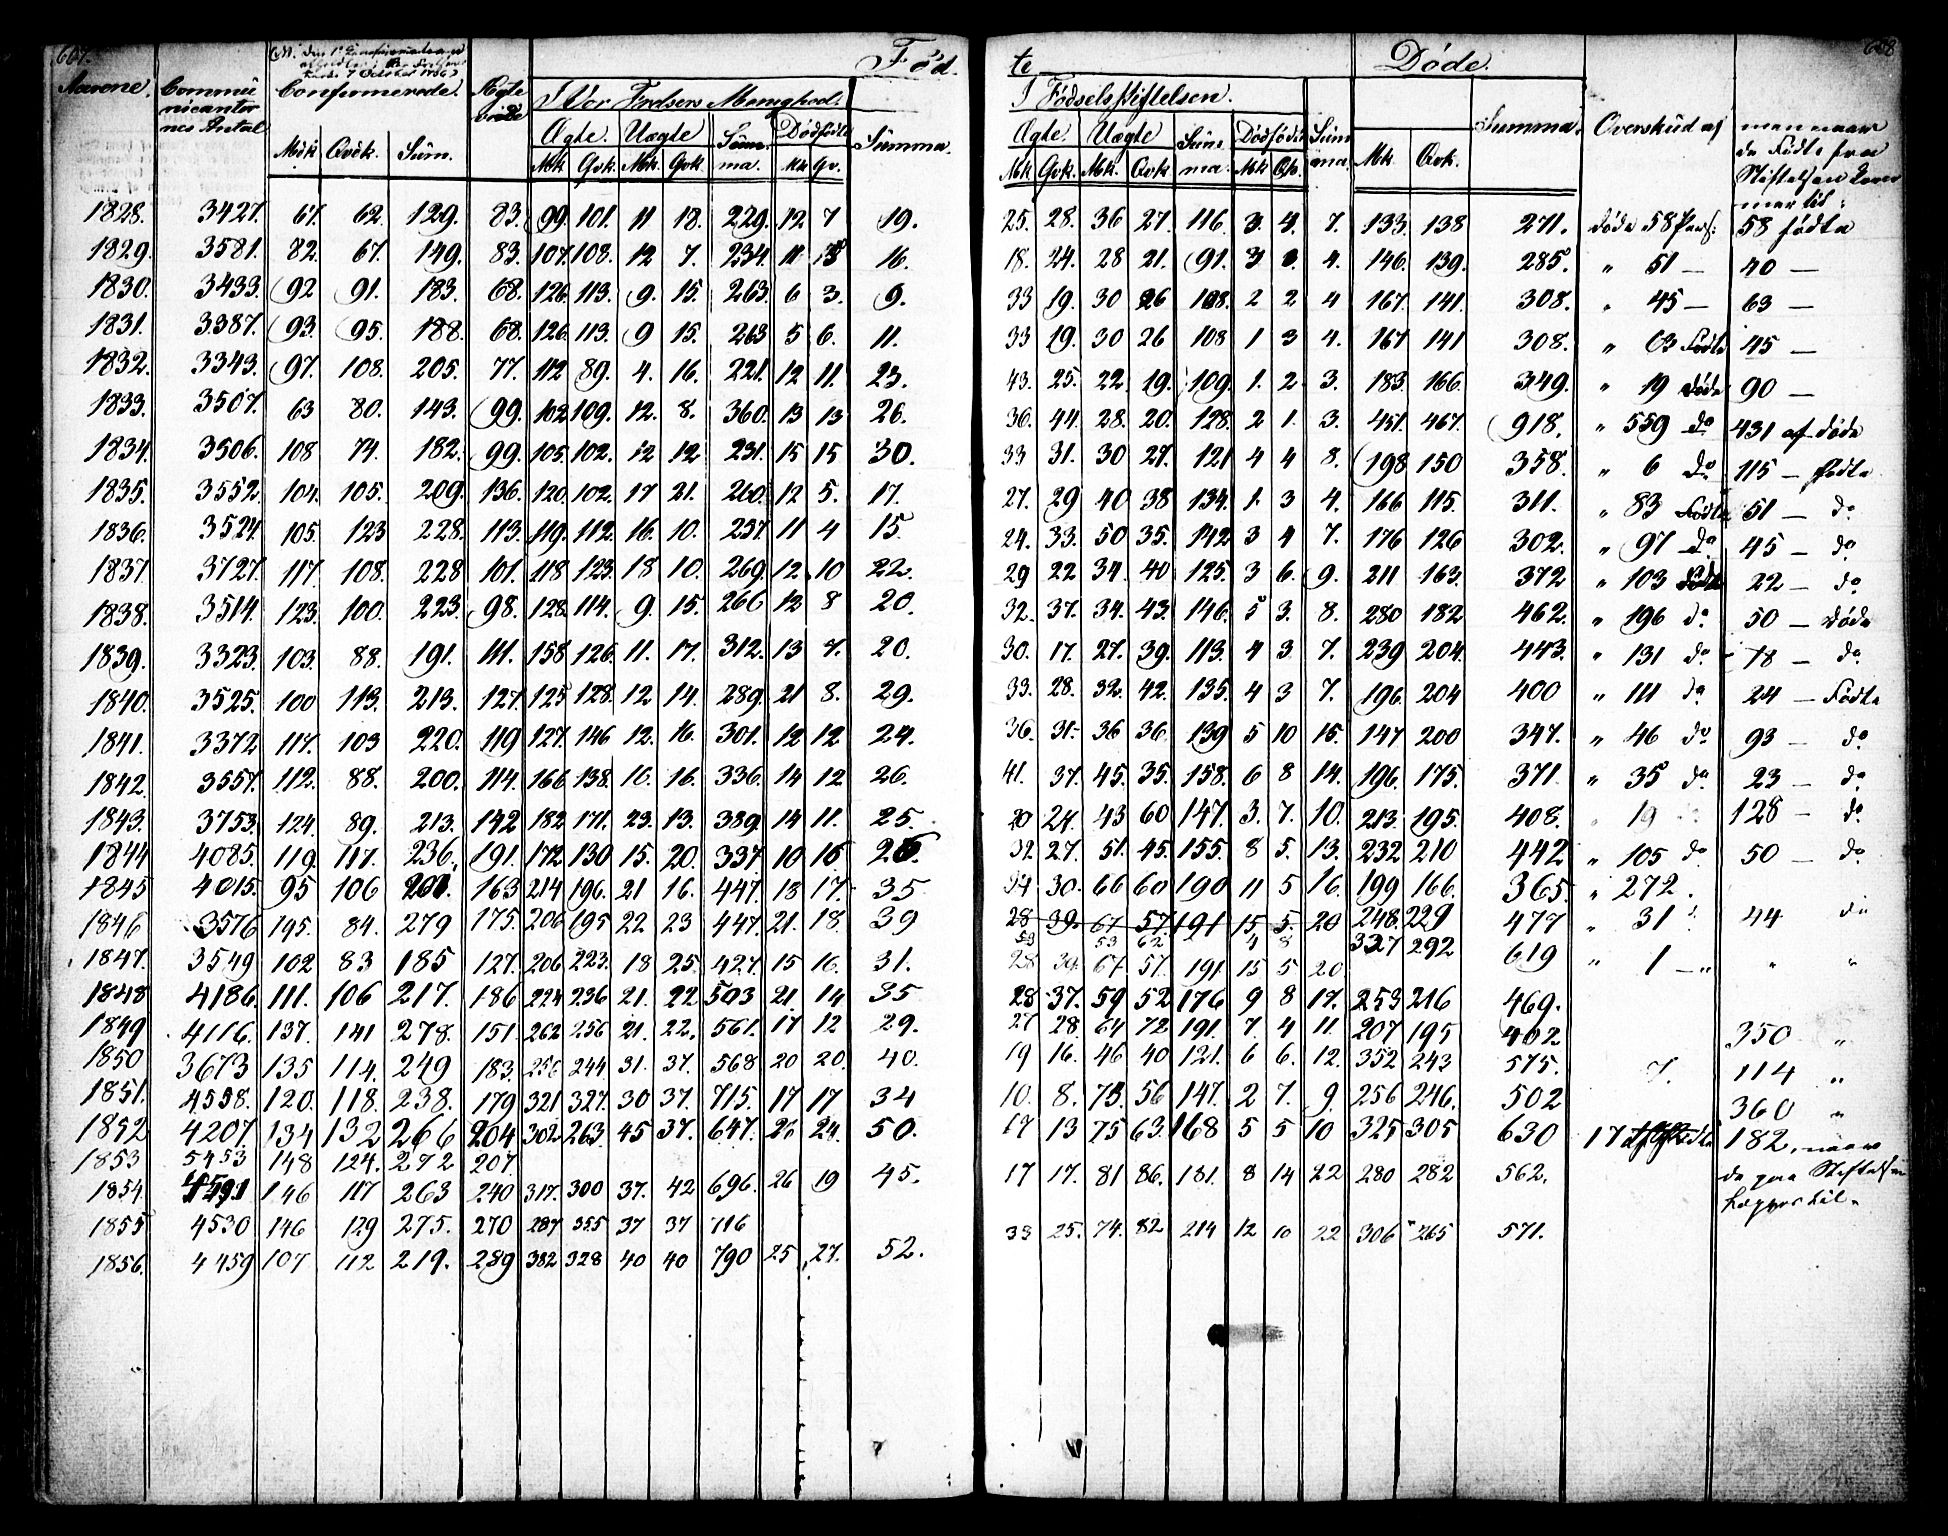 667.
668
NB. den 1ste Confirmation er
Kirke 7 October 1706
Født
te
Døde.
Aarene.
Communicanternes Antal
Confirmerede.
Ægte
I Vor Frelsers Menighed.
I Fødselsstiftelsen.
Summa.
Overskud af
men naar de Fødte fra Stiftelsen
Mk. Qvk. Sum.
Ægte. Uægte Summa. Dødfødte Summa.
Ægte. Uægte Summa. Dødfødte Summa.
Mk. Qvk.
Mk. Qvk. Mk. Qvk. Mk. Qv.
Mk. Qvk. Mk. Qvk. Mk. Qv.
1828. 3427. 67. 62. 129. 83. 99. 101. 11 18. 229. 12. 7 19. 25. 28. 36 27. 116 3. 4. 7. 133. 138 271. Døde 58 Pers: 58 fødte
1829. 3581. 82. 67. 149. 83. 107. 108. 12 7. 234. 11 16. 18. 24. 28 21. 91. 3 4. 146. 139. 285. " 51 — 40 —
1830. 3433. 92 91. 183. 68. 126. 113. 9. 15. 263. 6 3. 9. 33 19. 30 26 108. 2 2 4 167. 141. 308. " 45 — 63 —
1831. 3387. 93. 95. 188. 68. 126. 113. 9 15. 263 5 6. 11. 33 29. 30 26 108 1 3 4. 167 141 308. " 63 Fødte 45 —
1832. 3343. 97. 108. 205. 77. 112 89. 4. 16. 221. 12 11. 23. 43. 25. 22 19. 109. 1. 2. 3. 183. 166. 349. " 19 Døde 90 —
1833. 3507. 63 80. 143. 99. 102. 109. 12. 8. 360. 13 13 26. 36. 44. 28. 20. 128. 2 1. 3. 451. 467. 918. " 559 do 431 af døde
1834. 3506. 108 74. 182. 99. 105. 102. 12 12 231. 15 15 30. 33 31. 30 27. 121 4 4 8. 198 150 358. " 6 do 115 — fødte
1835. 3552. 104. 105. 209. 136. 120. 102. 17 21. 260. 12 5. 17. 27. 29 40 38 134. 1. 3 4. 166 115. 311. " 83 Fødte 51 — do
1836. 3524. 105. 123 228. 113. 119. 112. 16. 10. 257. 11 4 15. 24. 33. 50 35. 142 3 4 7. 176 126 302. " 97 do 45 — do
1837. 3727. 117. 108. 228 101. 118 123. 18 10. 269. 12. 10 22. 29 22 34. 40 125. 3 6. 9. 211 163. 372 " 103 22 — do
1838. 3514. 123. 100. 223. 98. 128. 114. 9. 15. 266 12 8 20. 32. 37. 34. 43. 146. 5 3. 8. 280 182 462. " 196 do 50 — Døde
1839. 3323. 103. 88. 191. 111. 158 126. 11. 17. 312. 13 7. 20. 30. 17. 27. 39. 113. 4 3 7. 239 204. 443. " 131 do 78 — do
1840. 3525. 100 113. 213. 127. 125 128. 12 14. 289. 21 8. 29. 33. 28. 32. 42. 135. 4 3 7. 196. 204 400 " 111 do 24 — Fødte
1841. 3372 117. 103 220. 119 127. 146 12. 16. 301. 12 12 24. 36. 31. 36 36. 139 5 10 15. 147 200 347. " 46 do 93 — do
1842. 3557. 112. 88. 200. 114. 166 138. 16. 16. 336. 14 12 26. 41. 37. 45. 35. 158. 6 8 14. 196. 175. 371 " 35 do 23 — do
1843. 3753. 124. 89. 213. 142 182 171. 23. 13. 389. 14 11. 25. 20 24. 43 60 147. 3. 7. 10. 213. 195. 408. " 19 128 — do
1844 4085. 119. 117. 236. 191. 172 130 15. 20. 337. 10 16 26. 32 27. 51. 45. 155. 8 5. 13. 232 210 442 " 105 do 50 — do
1845 4015. 95 106 201. 163 214 196. 21 16. 447. 18 17. 35 34 30. 66 60 190 11 5 16. 199 166. 365. " 272.
1846 3576 195. 84. 279 175. 206 195 22 23 447. 21. 18. 39 28 39. 67 57. 191 15 5. 20 248. 229 477 " 31 44 do
53 53 62 4 8 327 292
1847. 3549 102 83 185 127. 206 223. 18 25. 427. 15 16. 31. 28 39. 67. 57. 191. 15 5 20 619 " 1 — " " "
1848 4186. 111. 106 217. 186 224 236 21. 22 503 21. 14 35 28 37. 59 52 176 9 8 17. 253 216 469.
1849 4116. 137. 141 278. 151. 262 256 21. 22. 561. 17 12 29. 27 28. 64 72 191. 7. 4 11. 207 195 402 350 "
1850 3673 135 114. 249 183. 256 244 31. 37. 568 20 20. 40. 19 16. 46 40 121. 6 6. 12. 352 243 575. 7. 114 "
1851. 4558. 120. 118. 238. 179 321 327. 30 37. 715. 17 17 34 10. 8. 73. 56 147. 2 7. 9. 256 246. 502 360 "
1852 4207. 134 132 266 204 302 263. 45 37. 647. 26 24. 50. 17 13 75 63. 168 5 5 10 325 305 630 17 182. naar
1853 5453 148 124. 272 207
1854. 146 117 263 240 317. 300 37. 42 696. 26 19 45. 17 17. 81 86. 181. 8 14 22 280 282 562. de paa Stiftelsen
1855 4530 146 129 275. 270 287 355 37 37 716 33 25. 74. 82 214 12 10 22 306 265 571.
1856. 4459 107 112 219. 289 382 328 40 40 790 25 27. 52.